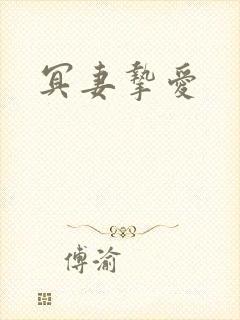 冥妻摯愛
傅渝